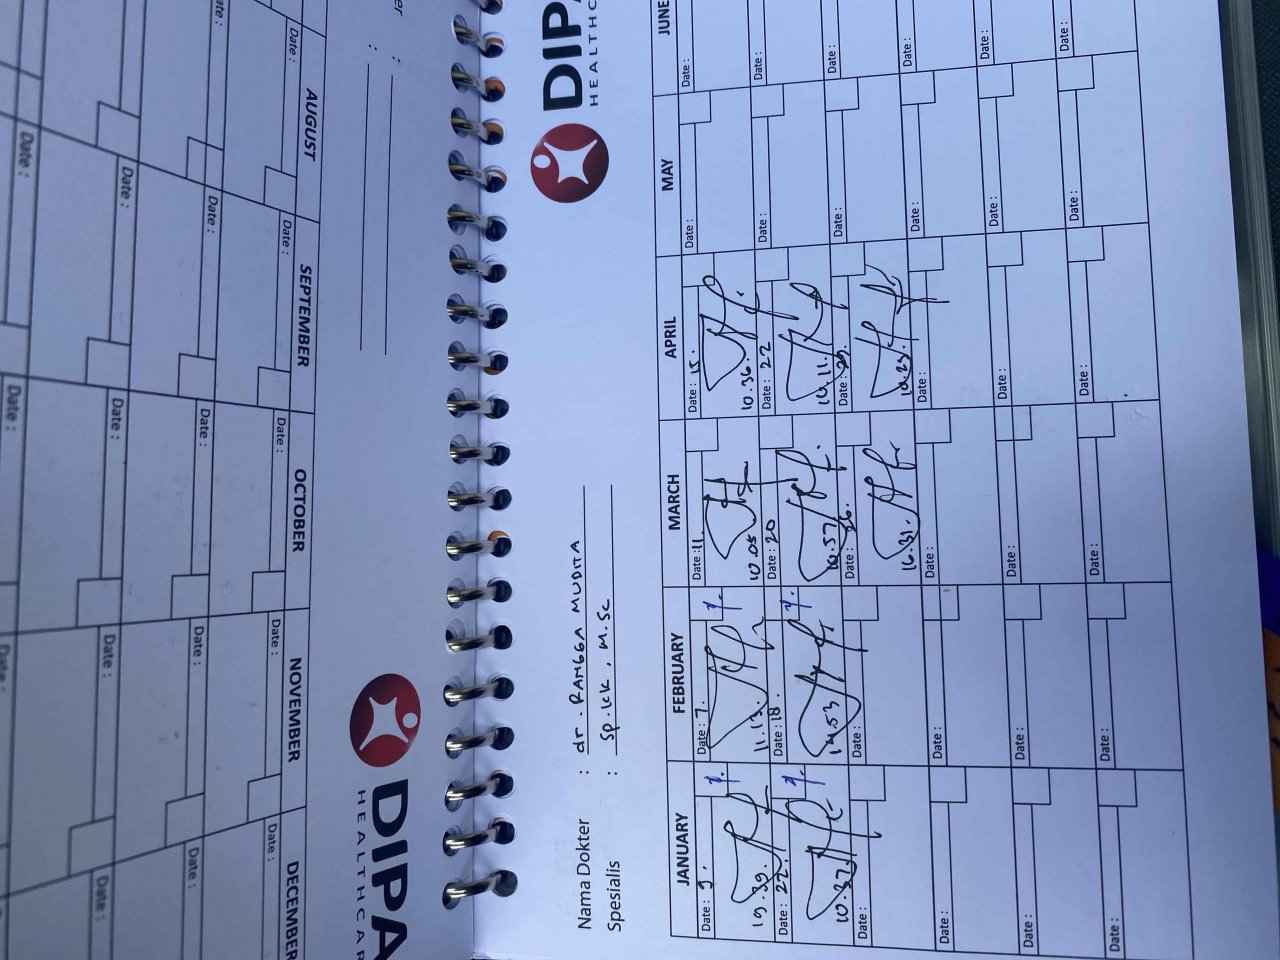 DIPA
HEALTHC
Nama Dokter : dr. RANGGA MUDITA
Spesialis : Sp.KK, M.Sc
JANUARY FEBRUARY MARCH APRIL MAY JUNE
Date : 9. Date : 7. Date : 11. Date : 15. Date : Date :
11.13. 10.05 10.36.
Date : 22. Date : 18. Date : 20 Date : 22 Date : Date :
10.37. 14.53 10.57 10.11.
Date : Date : Date : 26. Date : 29. Date : Date :
16.31. 10.23.
Date : Date : Date : Date : Date : Date :
Date : Date : Date : Date : Date : Date :
Date : Date : Date : Date : Date : Date :
DIPA
HEALTHCAR
AUGUST SEPTEMBER OCTOBER NOVEMBER DECEMBER
Date : Date : Date : Date : Date :
Date : Date : Date : Date :
Date : Date : Date : Date :
Date : Date :